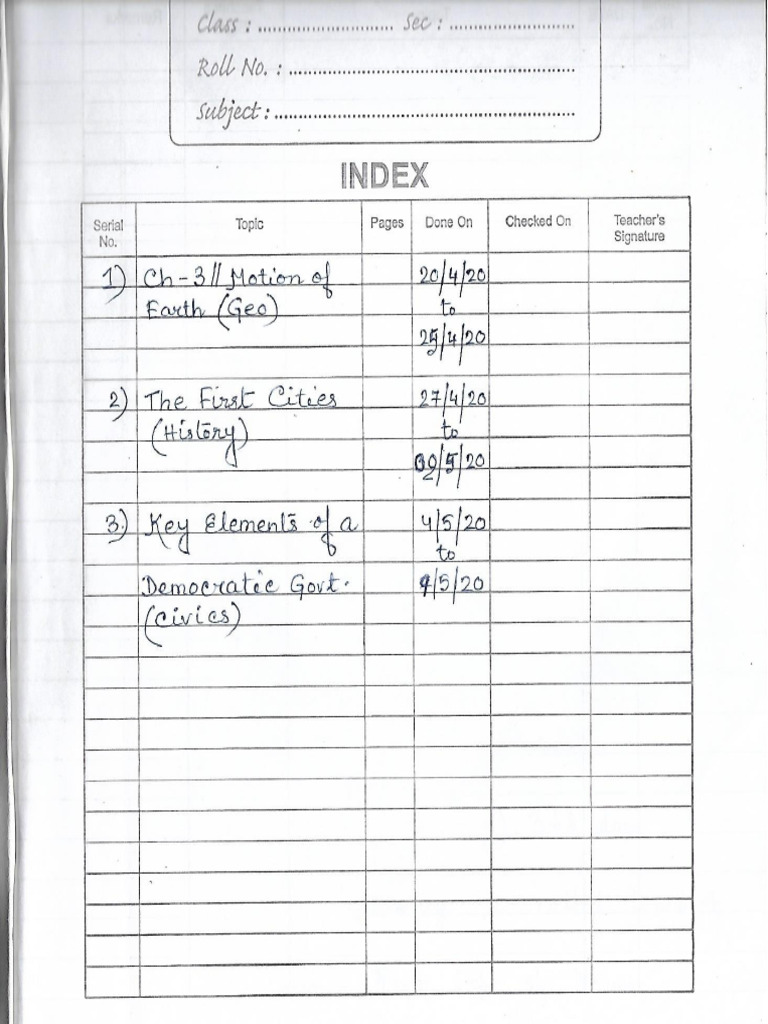 Class : ............................ Sec : ..........................
Roll No. : ............................................................
Subject : ..............................................................
INDEX
Serial No. Topic Pages Done On Checked On Teacher's Signature
1) Ch - 3 // Motion of 20/4/20
Earth (Geo) to
25/4/20
2) The First Cities 27/4/20
(History) to
02/5/20
3.) Key Elements of a 4/5/20
to
Democratic Govt. 9/5/20
(civics)